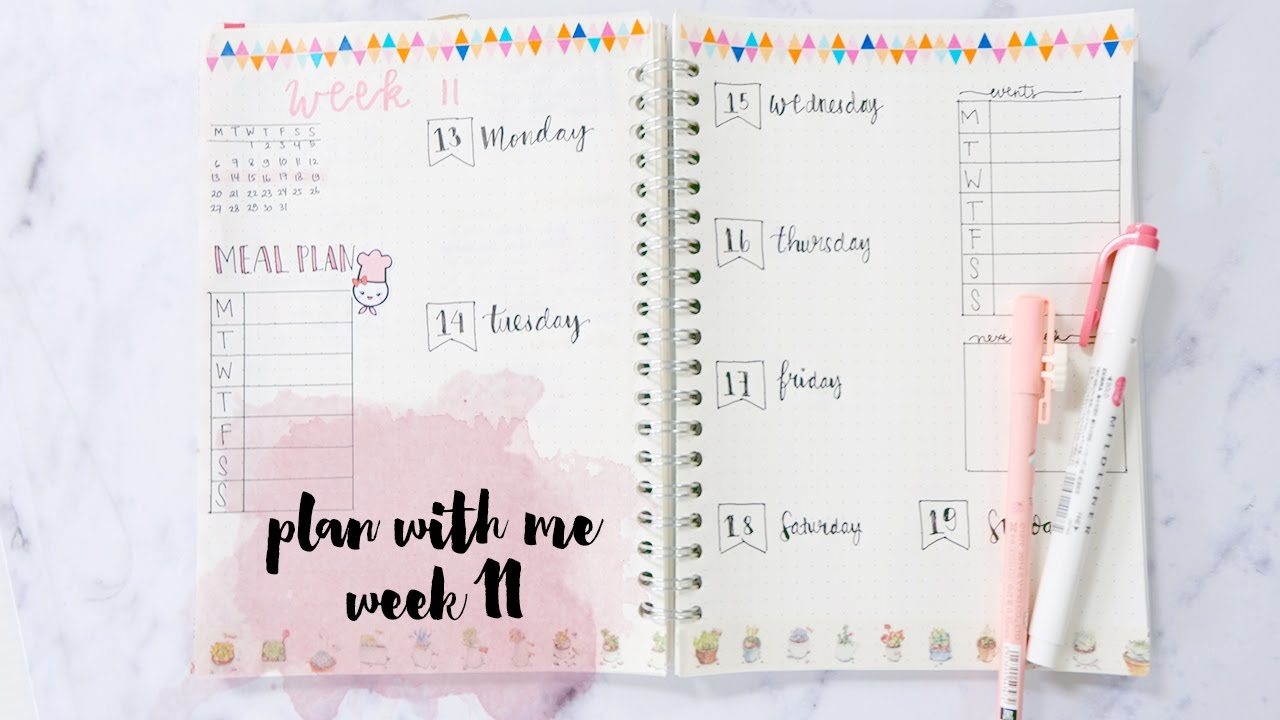 week 11
M T W T F S S
1 2 3 4 5
6 7 8 9 10 11 12
13 14 15 16 17 18 19
20 21 22 23 24 25 26
27 28 29 30 31
MEAL PLAN
M
T
W
T
F
S
S
13 Monday
14 tuesday
plan with me
week 11
15 wednesday
16 thursday
17 friday
18 saturday
19
events
M
T
W
T
F
S
S
next
MILDLINER